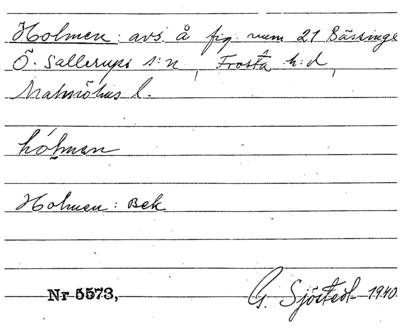 Holmen: avs. å fig. num 21 Bässinge
Ö. Sallerups s:n, Frosta h:d,
Malmöhus l.
hólmen
Holmen: Bek
Nr 5573, G. Sjöstedt 1940.